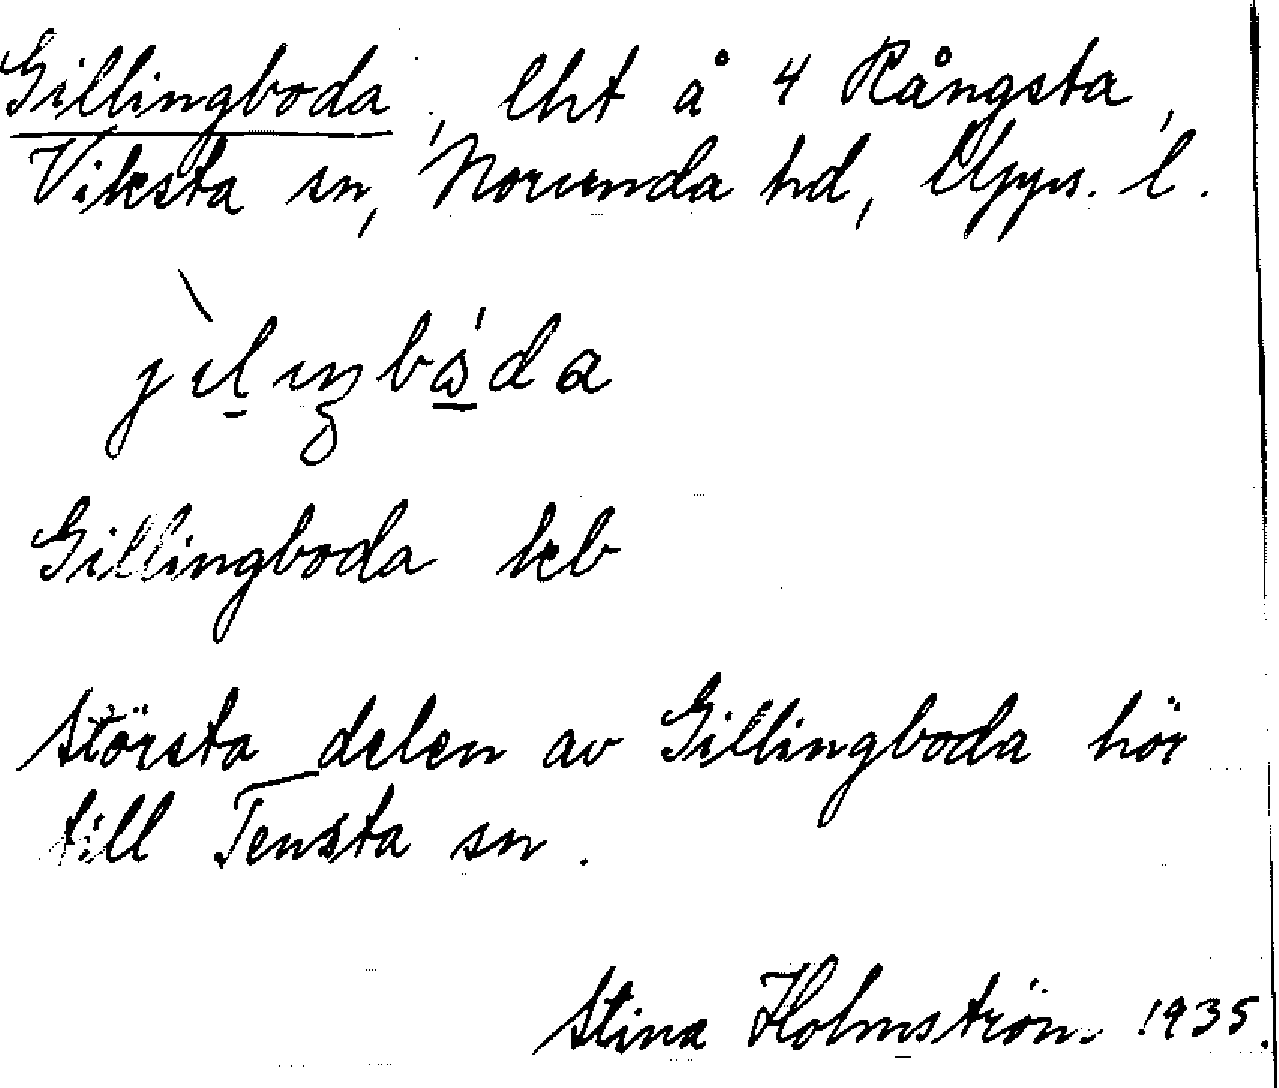 Gillingboda, lht å 4 Rångsta,
Viksta sn, Norunda hd, Upps. l.
Gillingboda keb
Största delen av Gillingboda hör
till Tensta sn.
Stina Holmström 1935.